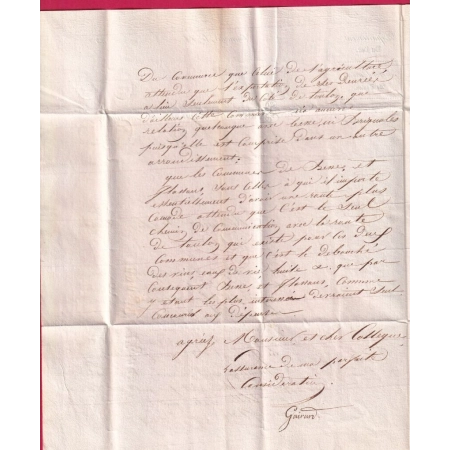 Du Commerce que celui de l'agriculture,
attendu que l'exportation de ses denrées
a lieu seulement du côté de toulon, que
d'ailleurs cette Commune n'a aucune
relation quelconque avec besse, ni Brignoles
puisqu'elle est Comprise dans un autre
arrondissement;
que les Communes de besse et
flassans, sont celles à qui il importe
essentiellement d'avoir une route plus
Comode attendu que C'est le seul
chemin de Communication avec la route
de toulon qui existe pour les deux
Communes et que C'est le debouché
des vins, eaux de vie, huile &c, que par
Consequent besse et flassans, Comme
y etant les plus interessés devraient seul
Concourir aux dépenses
agréez Monsieur et cher Collègue
l'assurance de ma parfaite
Consideration